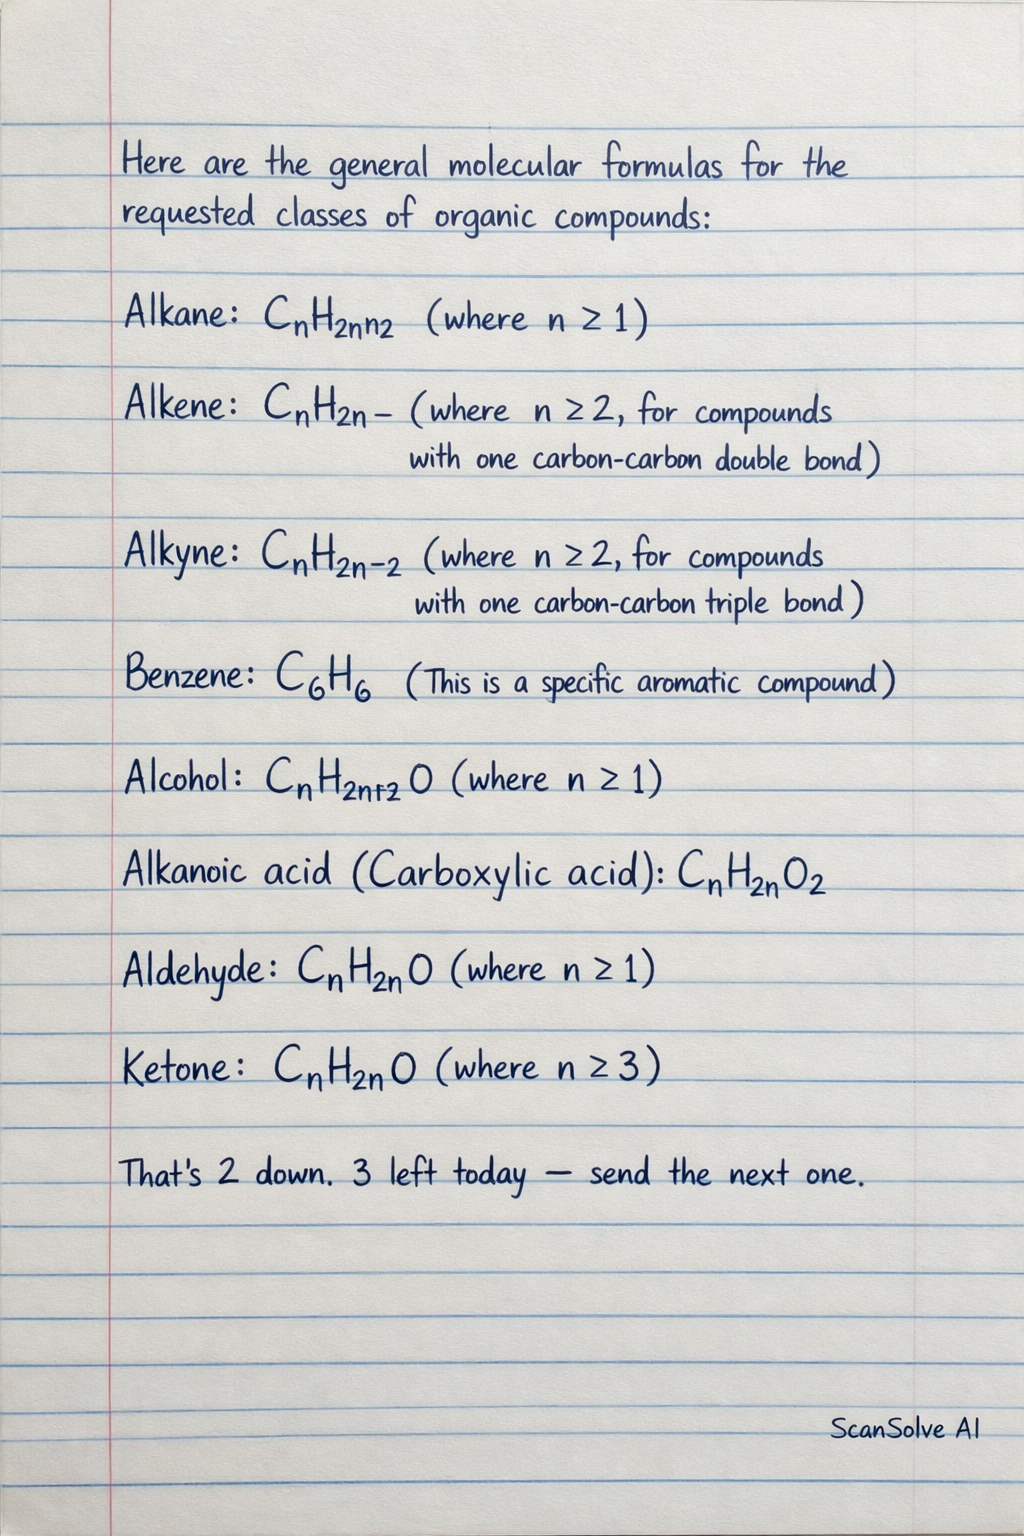 Here are the general molecular formulas for the
requested classes of organic compounds:
Alkane: CₙH₂ₙₙ₂ (where n ≥ 1)
Alkene: CₙH₂ₙ₋ (where n ≥ 2, for compounds
with one carbon-carbon double bond)
Alkyne: CₙH₂ₙ₋₂ (where n ≥ 2, for compounds
with one carbon-carbon triple bond)
Benzene: C₆H₆ (This is a specific aromatic compound)
Alcohol: CₙH₂ₙ₊₂O (where n ≥ 1)
Alkanoic acid (Carboxylic acid): CₙH₂ₙO₂
Aldehyde: CₙH₂ₙO (where n ≥ 1)
Ketone: CₙH₂ₙO (where n ≥ 3)
That's 2 down. 3 left today — send the next one.
ScanSolve AI